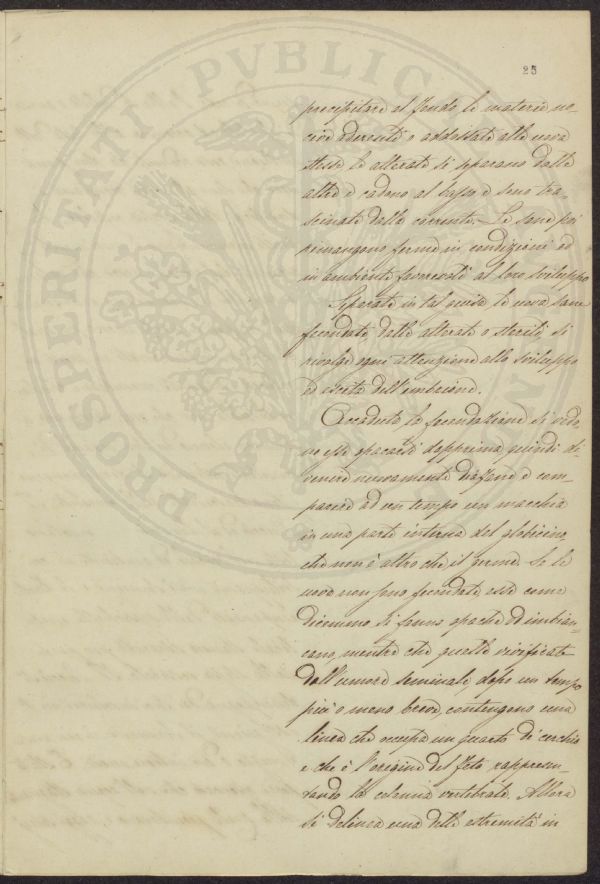 25
precipitare al fondo le materie no-
cive aderenti o addossate alle uova
stesse le alterate si separano dalle
altre e cadono al basso e sono tra-
scinate dalla corrente. Le sane poi
rimangono ferme in condizioni ed
in ambiente favorevoli al loro sviluppo
Separate in tal guisa le uova sane
fecondate dalle alterate o sterili, si
rivolge ogni attenzione allo sviluppo
ed escita dell'embrione.
Accaduta la fecondazione si vedo-
no esse opacarsi dapprima quindi di-
venire nuovamente diafane e com-
parire ad un tempo un macchia
in una parte interna del globicino,
che non è altro che il germe. Se le
uova non sono fecondate esse come
dicemmo si fanno opache ed imbian-
cano, mentre che quelle vivificate
dall'umore seminale, dopo un tempo
più o meno breve, contengono una
linea che occupa un quarto di cerchio
e che è l'origine del feto rappresen-
tando la colonna vertebrale. Allora
si delinea una delle estremità in
PROSPERITATI PVBLICAE